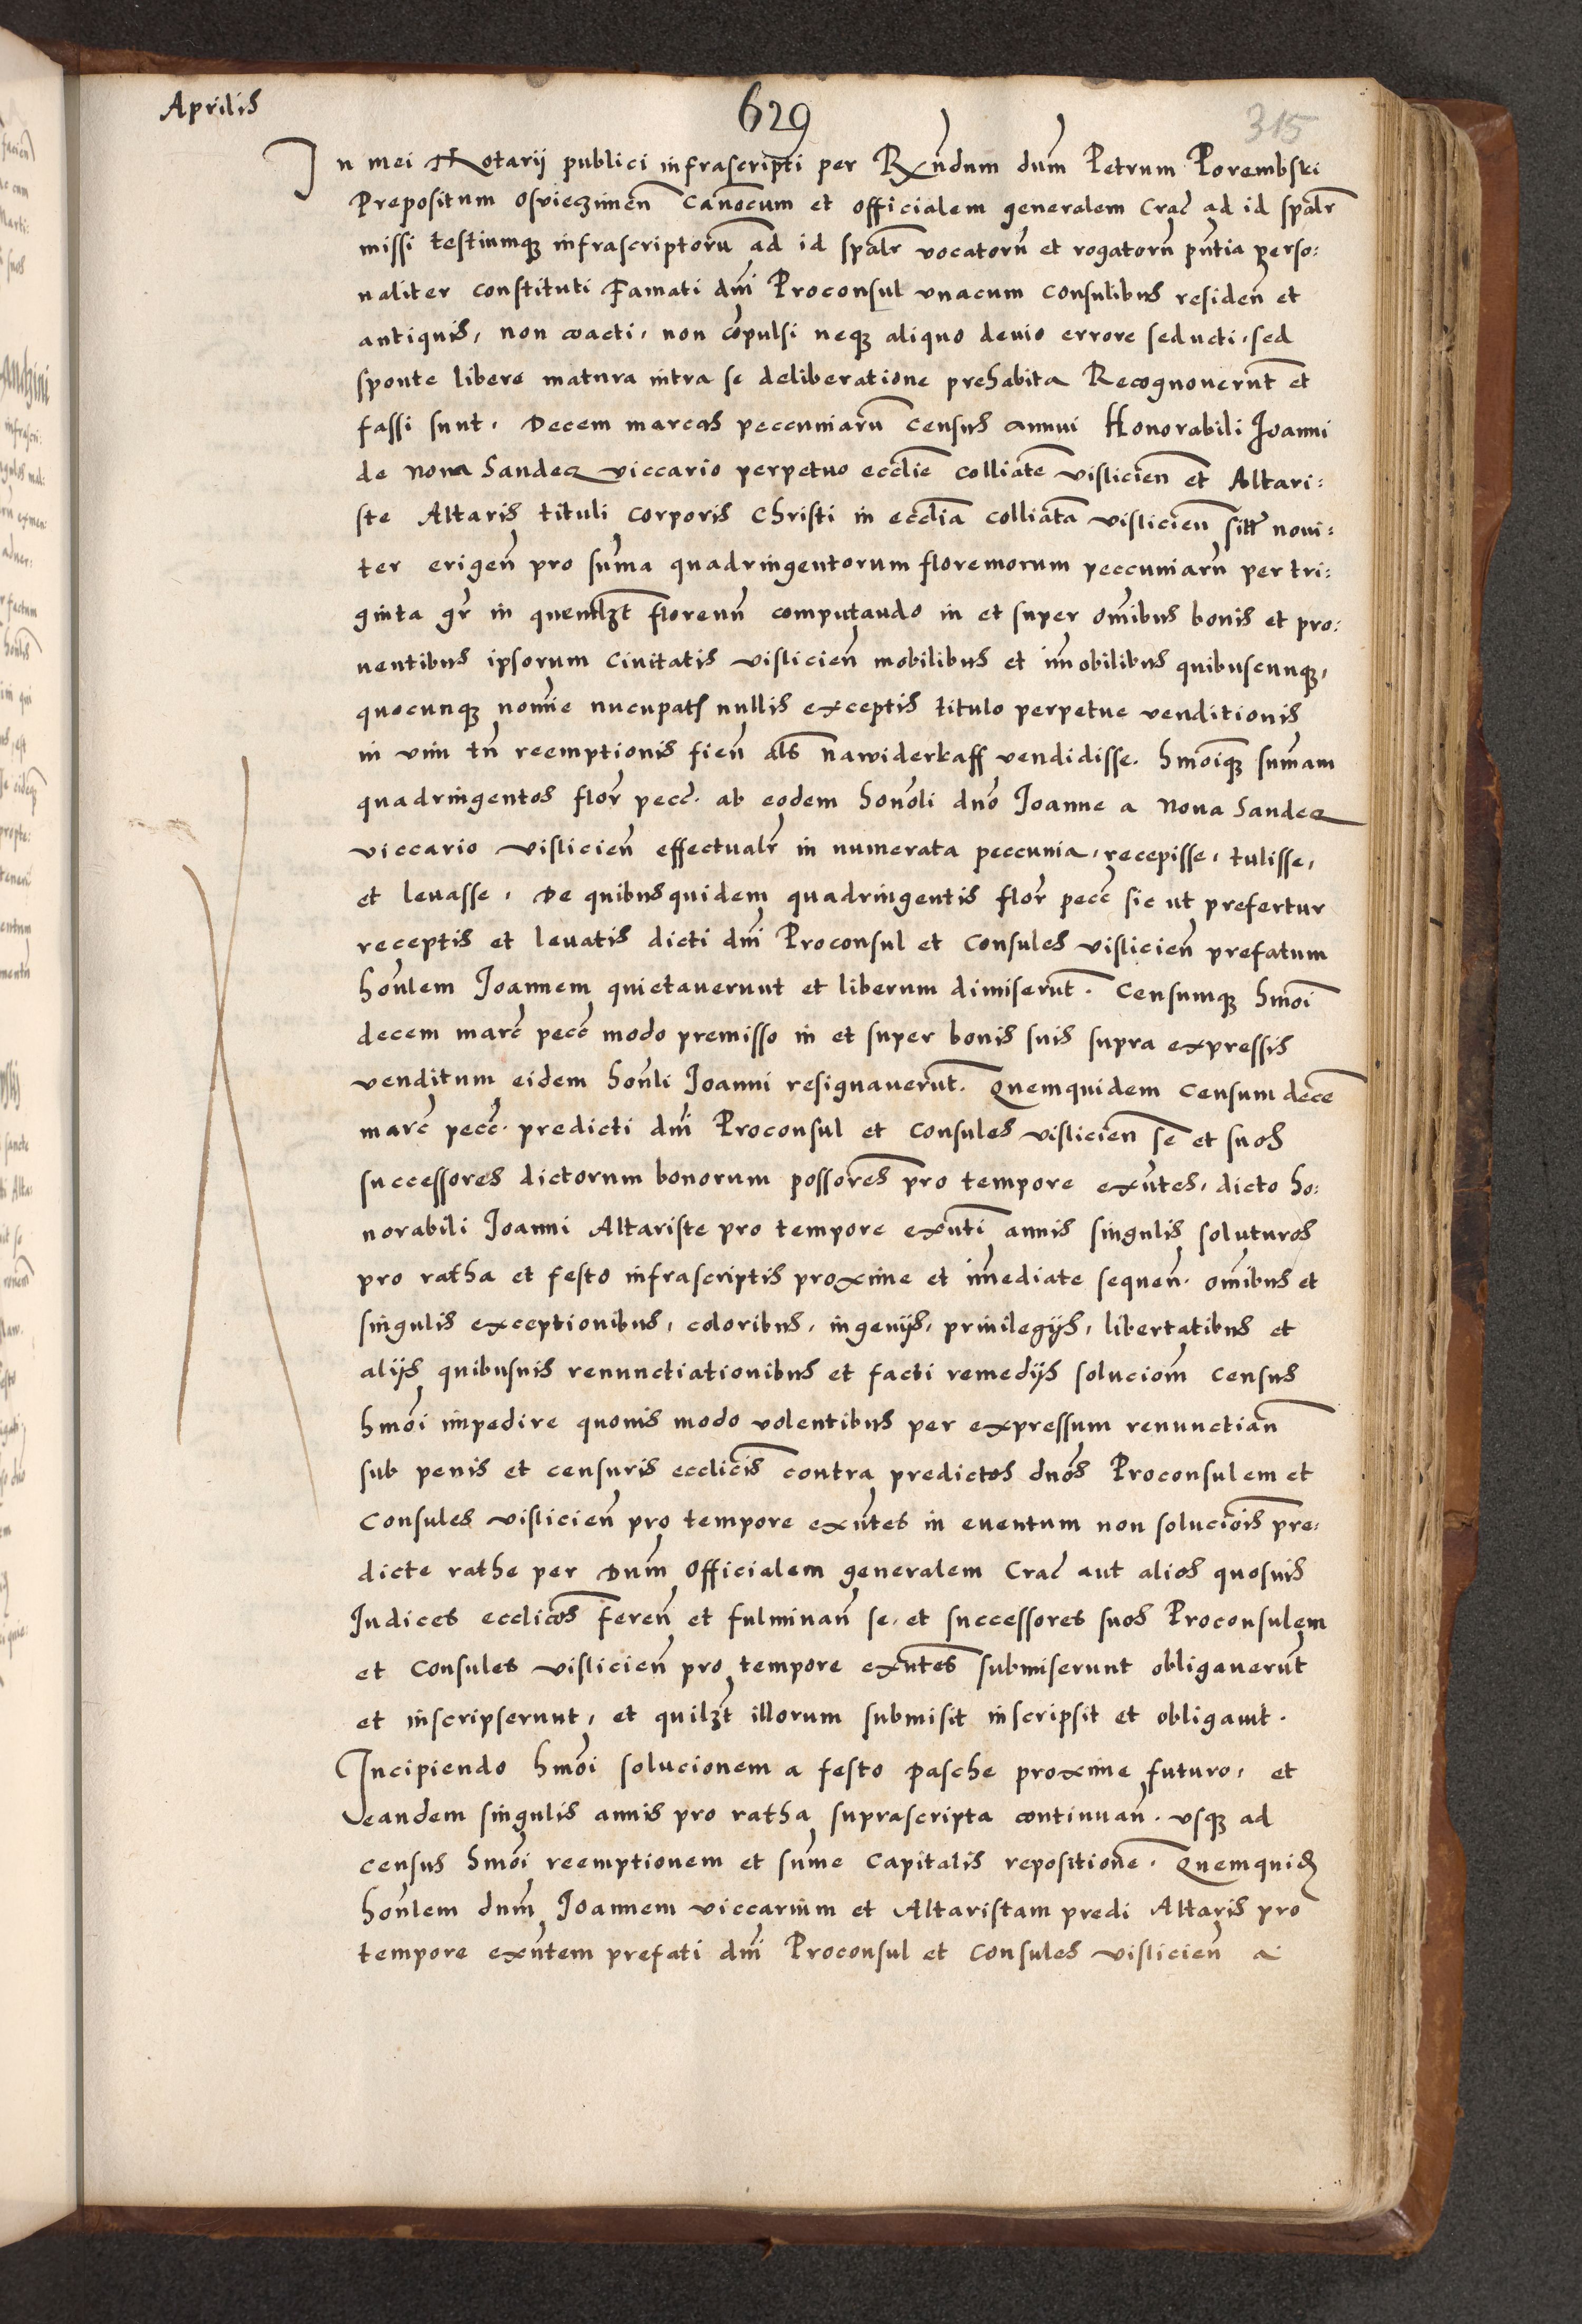 Aprilis
629
315
In mei Notarij publici infrascripti per Rxndum dum̄ Petrum Porembski
Prepositum osvieczimen̄ Can̄ocum et officialem generalem Crac̄ ad id spālr
missi testiumqꝫ infrascriptorū ad id spālr vocatorū et rogatorū pn̄tia perso:
naliter constituti Famati dn̄i Proconsul vnacum consulibus residen̄ et
antiquis, non coacti, non cōpulsi neqꝫ aliquo deuio errore seducti, sed
sponte libere matura intra se deliberatione prehabita Recognouerūt et
fassi sunt, Decem marcas peccuniarū census annui Honorabili Joanni
de Noua Sandecz viccario perpetuo eccl̄ie colliate visliciēn et Altari:
ste Altaris tituli corporis Christi in eccl̄ia colliata visliciēn silr̄ noui:
ter erigen̄ pro sum̄a quadringentorum florenorum peccuniarū per tri:
ginta gr̄ in quemlꝫt florenū computando in et super om̄ibus bonis et pro:
uentibus ipsorum ciuitatis visliciēn mobilibus et im̄obilibus quibuscunqꝫ,
quocunqꝫ nomīe nucupatis nullis exceptis titulo perpetue venditionis
in vim tn̄ reemptionis fien̄ als̄ nawiderkaff vendidisse. hmōiqꝫ sum̄am
quadringentos flor̄ pecc̄. ab eodem honōli dn̄o Joanne a Noua Sandecz
viccario visliciēn effectualr̄ in numerata peccunia, recepisse, tulisse,
et leuasse, De quibusquidem quadringentis flor̄ pecc̄ sic ut prefertur
receptis et leuatis dicti dn̄i Proconsul et Consules visliciēn prefatum
honl̄em Joannem quietauerunt et liberum dimiserūt. Censumqꝫ hmōi
decem marc̄ pecc̄ modo premisso in et super bonis suis supra expressis
venditum eidem honl̄i Joanni resignauerūt. Quemquidem censum decē
marc̄ pecc̄. predicti dn̄i Proconsul et Consules visliciēn se et suos
successores dictorum bonorum possores pro tempore exn̄tes, dicto ho:
norabili Joanni Altariste pro tempore exn̄ti annis singulis soluturos
pro ratha et festo infrascriptis proxime et im̄ediate sequen̄. om̄ibus et
singulis exceptionibus, coloribus, ingenijs, priuilegijs, libertatibus et
alijs quibusuis renunctiationibus et facti remedijs soluciom̄ census
hmōi impedire quouis modo volentibus per expressum renunctian̄
sub penis et censuris ecclīcis contra predictos dn̄os Proconsulem et
Consules visliciēn pro tempore exn̄tes in euentum non soluciōis pre:
dicte rathe per Dum̄ Officialem generalem Crac̄ aut alios quosuis
Judices ecclīcos feren̄ et fulminan̄ se, et successores suos Proconsulem
et Consules visliciēn pro tempore exn̄tes submiserunt obligauerūt
et inscripserunt, et quilꝫt illorum submisit inscripsit et obligauit.
Incipiendo hmōi solucionem a festo Pasche proxime futuro, et
eandem singulis annis pro ratha suprascripta continuan̄. vsqꝫ ad
census hmōi reemptionem et sum̄e capitalis repositionē. Quemquidem
honl̄em dnm̄ Joannem viccarium et Altaristam predi Altaris pro
tempore exn̄tem prefati dn̄i Proconsul et Consules visliciēn a